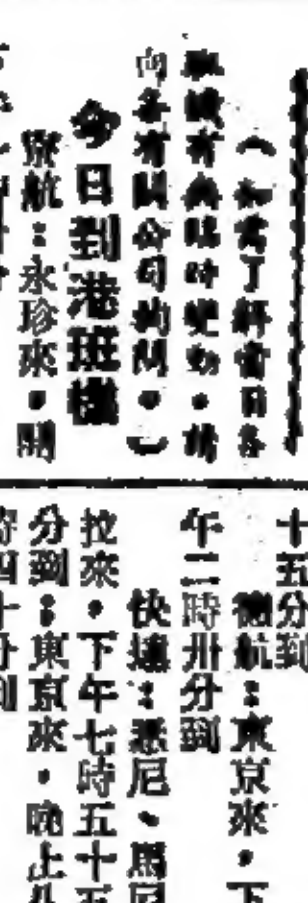 （如需了解當日各
航機有無臨時變動，請
向各有關公司詢問。）
今日到港班機
京航：永珍來，開
十五分到
德航：東京來，下
午二時卅分到
快達：悉尼、馬尼
拉來，下午七時五十五
分到；東京來，晚上八
時四十分到